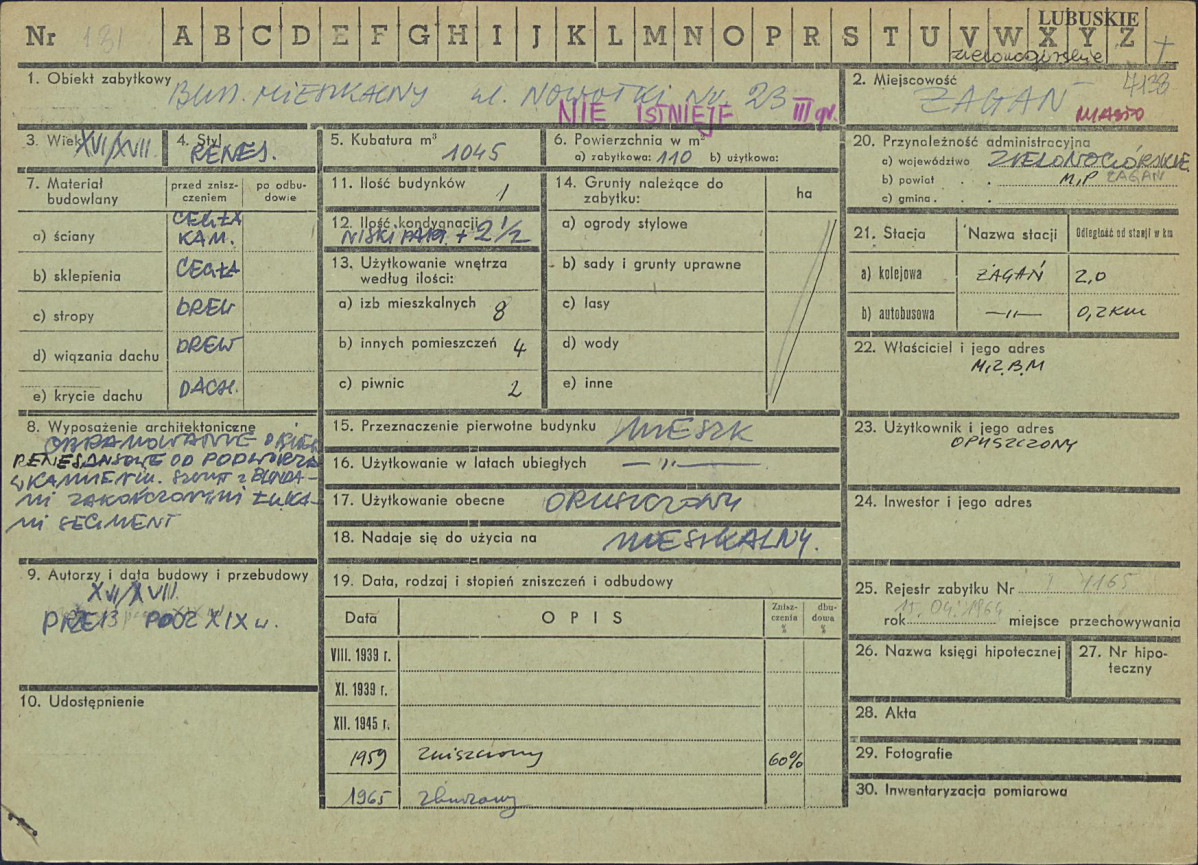 LUBUSKIE
Nr 131 A B C D E F G H I J K L M N O P R S T U V W X Y Z
zielonogórskie
1. Obiekt zabytkowy
BUD. MIESZKALNY ul. NOWOTKI Nr. 23
NIE ISTNIEJE III gr.
2. Miejscowość 7138
ŻAGAŃ
MIASTO
3. Wiek XVI/XVII
4. Styl RENES.
5. Kubatura m³ 1045
6. Powierzchnia w m²
a) zabytkowa: 110 b) użytkowa:
7. Materiał budowlany
przed zniszczeniem
po odbudowie
a) ściany CEGŁA KAM.
b) sklepienia CEGŁA
c) stropy DREW
d) wiązania dachu DREW
e) krycie dachu DACH.
8. Wyposażenie architektoniczne
OBRAMOWANIE
RENESANSOWE OD PODWÓRZA
W KAMIENIU. SZCZYT Z BLENDA-
MI ZAKOŃCZONYMI ŁUKA-
MI SEGMENT
9. Autorzy i data budowy i przebudowy
XVI/XVII.
PRZEB POCZ XIX w.
10. Udostępnienie
11. Ilość budynków 1
12. Ilość kondygnacji
NISKI PART + 2 1/2
13. Użytkowanie wnętrza według ilości:
a) izb mieszkalnych 8
b) innych pomieszczeń 4
c) piwnic 2
14. Grunty należące do zabytku:
ha
a) ogrody stylowe
b) sady i grunty uprawne
c) lasy
d) wody
e) inne
15. Przeznaczenie pierwotne budynku MIESZK
16. Użytkowanie w latach ubiegłych —"—
17. Użytkowanie obecne OPUSZCZONY
18. Nadaje się do użycia na MIESZKALNY.
19. Data, rodzaj i stopień zniszczeń i odbudowy
Data
OPIS
Zniszczenia %
dbudowa %
VIII. 1939 r.
XI. 1939 r.
XII. 1945 r.
1959 zniszczony 60%
1965 zburzony
20. Przynależność administracyjna
a) województwo ZIELONOGÓRSKIE.
b) powiat . . M.P ŻAGAŃ
c) gmina . .
21. Stacja
Nazwa stacji
Odległość od stacji w km
a) kolejowa ŻAGAŃ 2,0
b) autobusowa —"— 0,2 km
22. Właściciel i jego adres
M.Z.B.M
23. Użytkownik i jego adres
OPUSZCZONY
24. Inwestor i jego adres
25. Rejestr zabytku Nr 1165
rok miejsce przechowywania
26. Nazwa księgi hipotecznej
27. Nr hipoteczny
28. Akta
29. Fotografie
30. Inwentaryzacja pomiarowa